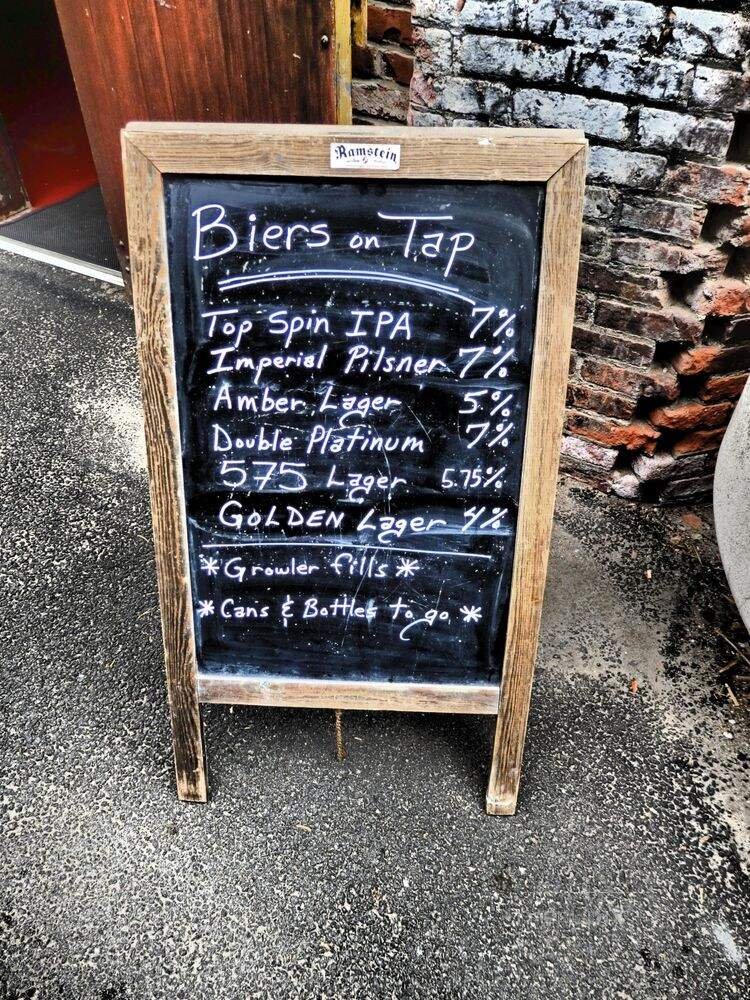 Ramstein
Biers on Tap
Top Spin IPA 7%
Imperial Pilsner 7%
Amber Lager 5%
Double Platinum 7%
575 Lager 5.75%
GOLDEN Lager 4%
*Growler fills*
*Cans & Bottles to go *